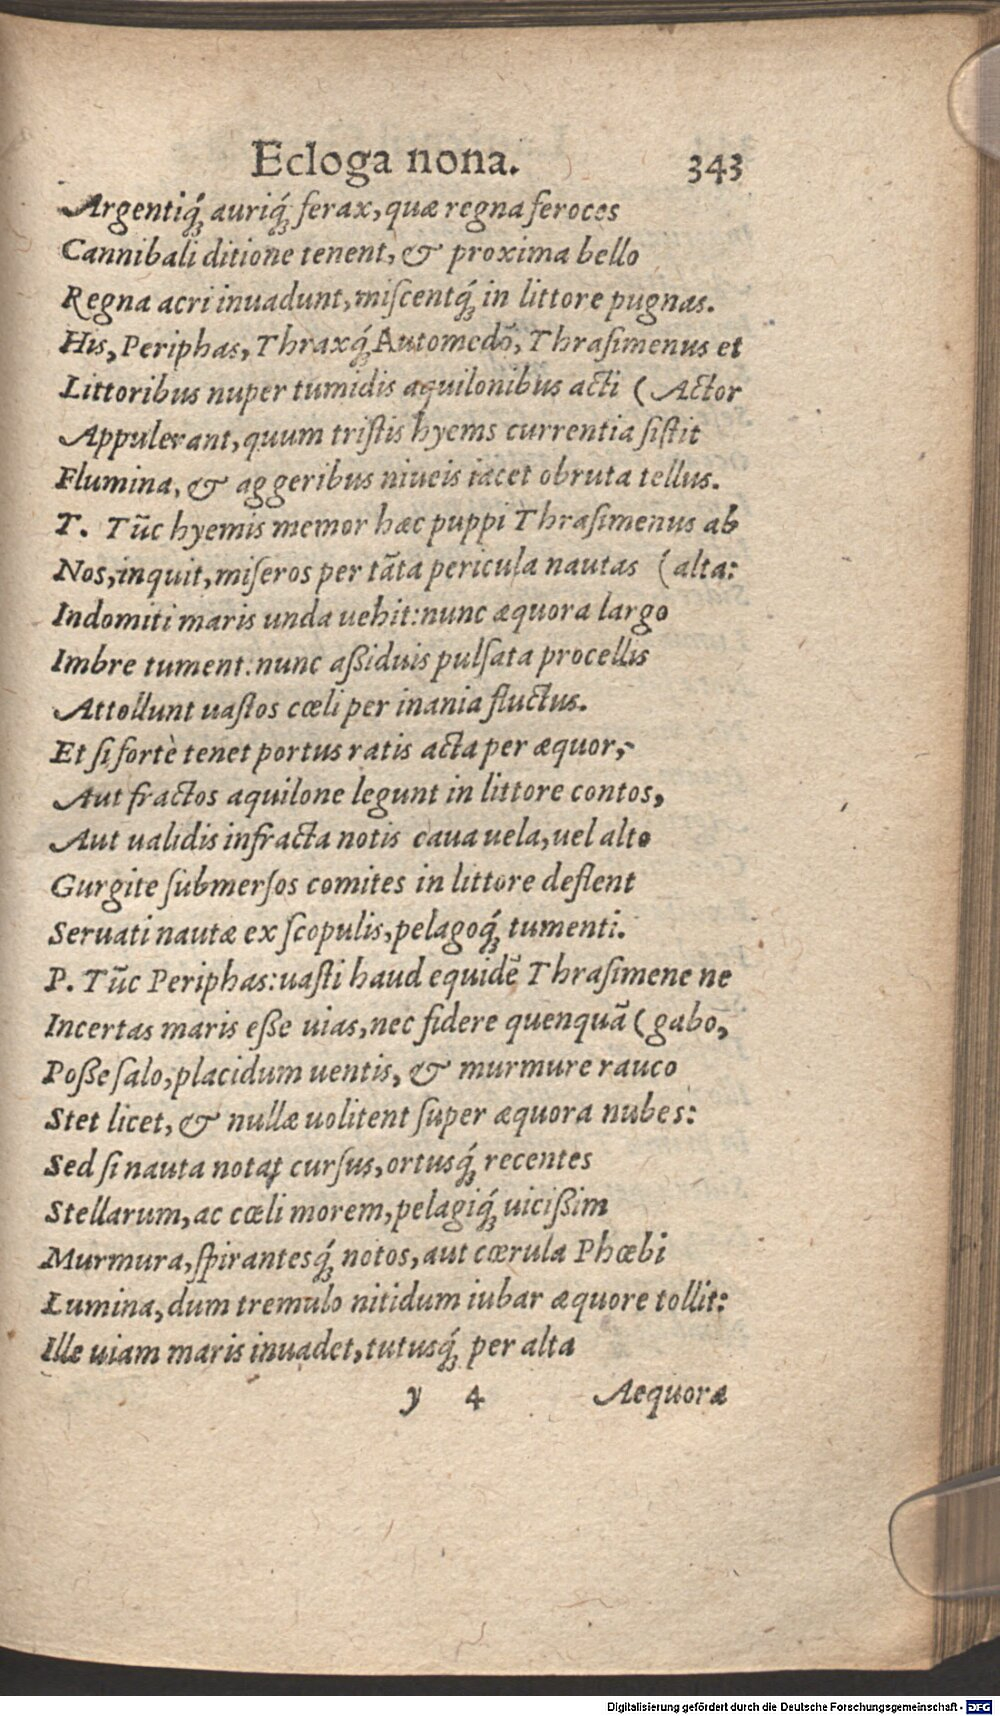 Ecloga nona. 343
Argentiq́; auriq́; ferax, quæ regna feroces
Cannibali ditione tenent, & proxima bello
Regna acri inuadunt, miſcentq́; in littore pugnas.
His, Periphas, Thraxq́; Automedō, Thraſimenus et
Littoribus nuper tumidis aquilonibus acti (Actor
Appulerant, quum triſtis hyems currentia ſiſtit
Flumina, & aggeribus niueis iacet obruta tellus.
T. Tūc hyemis memor hæc puppi Thraſimenus ab
Nos, inquit, miſeros per tāta pericula nautas (alta:
Indomiti maris unda uehit: nunc æquora largo
Imbre tument: nunc aßiduis pulſata procellis
Attollunt uaſtos cœli per inania fluctus.
Et ſi fortè tenet portus ratis acta per æquor,
Aut fractos aquilone legunt in littore contos,
Aut ualidis infracta notis caua uela, uel alto
Gurgite ſubmerſos comites in littore deflent
Seruati nautæ ex ſcopulis, pelagoq́; tumenti.
P. Tūc Periphas: uaſti haud equidē Thraſimene ne
Incertas maris eße uias, nec fidere quenquā (gabo,
Poße ſalo, placidum uentis, & murmure rauco
Stet licet, & nullæ uolitent ſuper æquora nubes:
Sed ſi nauta notat curſus, ortusq́; recentes
Stellarum, ac cœli morem, pelagiq́; uicißim
Murmura, ſpirantesq́; notos, aut cœrula Phœbi
Lumina, dum tremulo nitidum iubar æquore tollit:
Ille uiam maris inuadet, tutusq́; per alta
y 4 Aequora
Digitalisierung gefördert durch die Deutsche Forschungsgemeinschaft - DFG